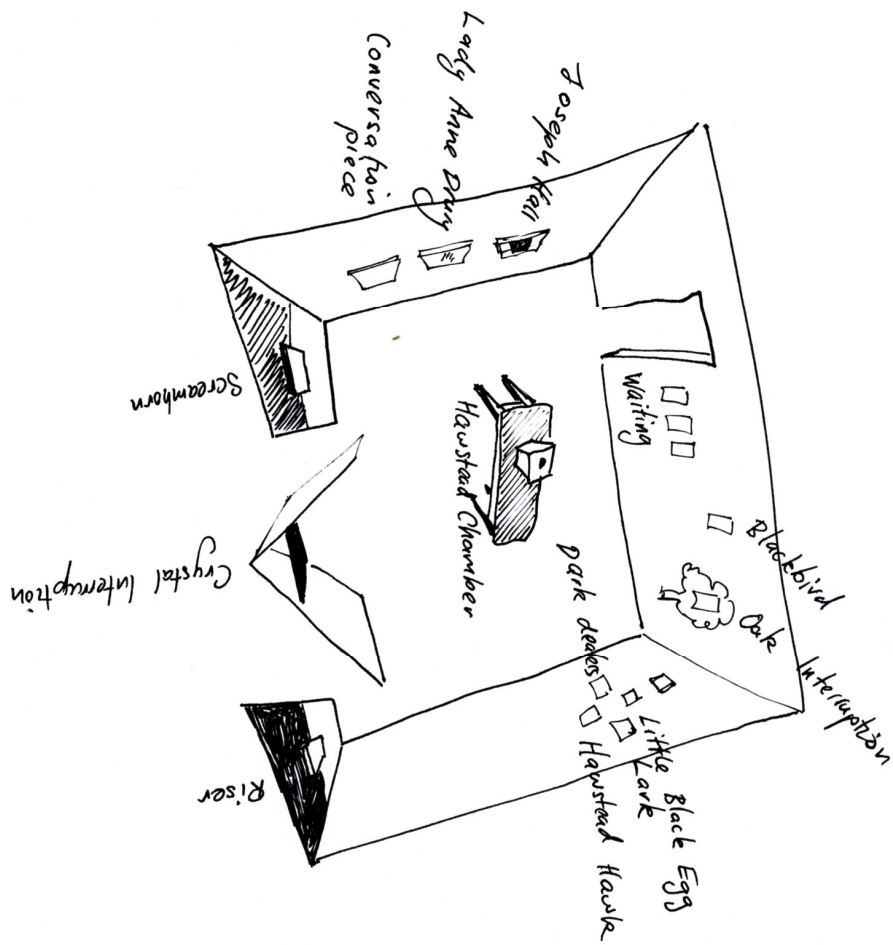 Joseph Hall
Lady Anne Drury
Conversation
piece
Screamhorn
Crystal Interruption
Riser
Hawstead Chamber
Waiting
Blackbird
Oak
Interruption
dealers
Little Black Egg
Lark
Hawstead Hawk